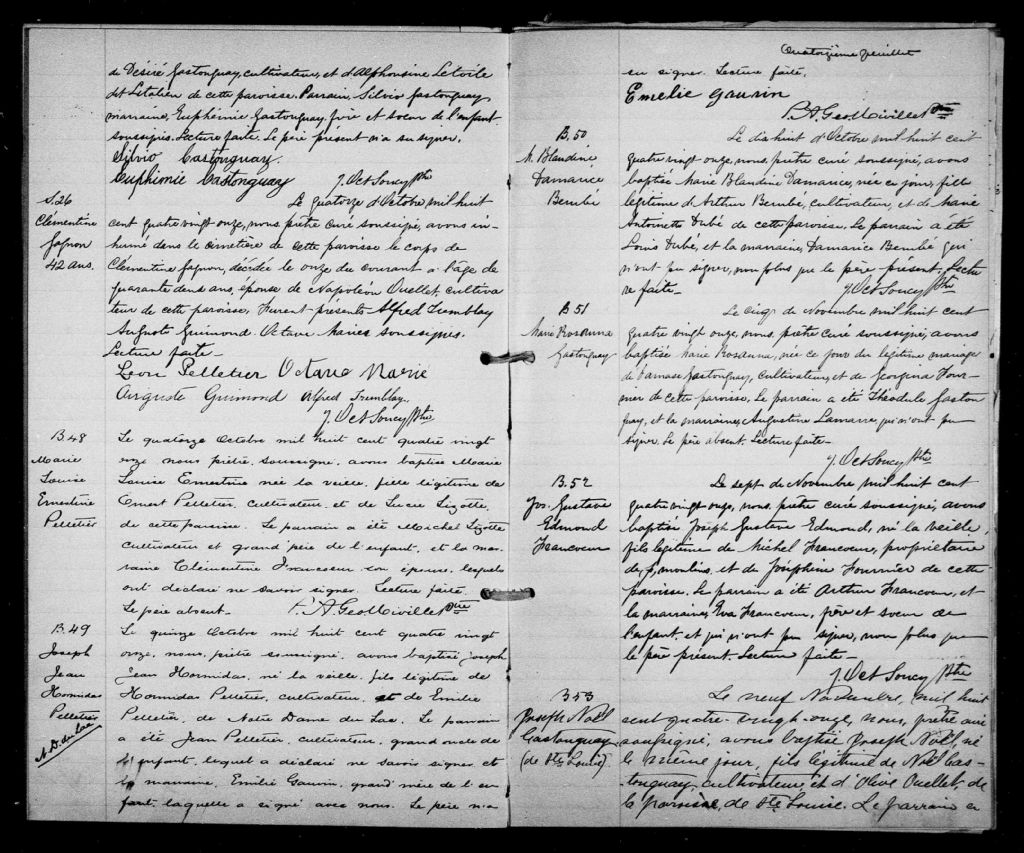 de Désiré Gastonguay, cultivateur, et d'Alphonsine Létoile
dit Litalien de cette paroisse. Parrain, Silvio Gastonguay,
marraine, Euphémie Gastonguay, frère et soeur de l'enfant
soussignés. Lecture faite. Le père présent n'a su signer.
Silvio Castonguay.
Euphimie Castonguay
J. Oct Soucy Ptre
S.26
Clémentine
Gagnon
42 ans.
Le quatorze d'Octobre mil huit
cent quatre vingt onze, nous prêtre curé soussigné, avons in-
humé dans le cimetière de cette paroisse le corps de
Clémentine Gagnon, décédée le onze du courant à l'âge de
quarante deux ans, épouse de Napoléon Ouellet, cultiva
teur de cette paroisse, Furent présents Alfred Tremblay
Auguste Guimond. Octave Marier soussignés.
Lecture faite -
Leon Pelletier Octave Marié
Auguste Guimond Alfred Tremblay.
J. Oct Soucy Ptre
B.48
Marie
Louise
Ernestine
Pelletier
Le quatorze Octobre mil huit cent quatre vingt
onze nous prêtre, soussigné, avons baptisé Marie
Louise Ernestine née la veille, fille légitime de
Ernest Pelletier, cultivateur, et de Lucie Lizotte,
de cette paroisse. Le parrain a été Michel Lizotte
cultivateur et grand père de l'enfant, et la mar
raine Clémentine Francoeur son épouse, lesquels
ont déclaré ne savoir signer. Lecture faite.
Le père absent. P. A. Geo Miville Ptre
B.49
Joseph
Jean
Hormidas
Pelletier
N.D. du Lac
Le quinze Octobre mil huit cent quatre vingt
onze, nous, prêtre, soussigné, avons baptisé Joseph
Jean Hormidas, né la veille, fils légitime de
Hormidas Pelletier, cultivateur, et de Emilie
Pelletier, de Notre Dame du Lac. Le parrain
a été Jean Pelletier, cultivateur, grand oncle de
l'enfant, lequel a déclaré ne savoir signer, et
la marraine, Emélie Gauvin, grand'mère de l'en
fant, laquelle a signé avec nous. Le père n'a
Quatorzième feuillet
su signer. Lecture faite.
Emelie Gauvin
P. A Geo Miville Ptre
B.50
M. Blandine
Damarice
Berubé
Le dix huit d'Octobre mil huit cent
quatre vingt onze, nous, prêtre curé soussigné, avons
baptisé Marie Blandine Damarice, née ce jour, fille
légitime d'Arthur Berubé, cultivateur, et de Marie
Antoinette Dubé de cette paroisse. Le parrain a été
Louis Dubé, et la marraine, Damarice Berubé qui
n'ont pu signer, non plus que le père présent. Lectu
re faite -
J. Oct Soucy Ptre
B.51
Marie Rosanna
Gastonguay
Le cinq de Novembre mil huit cent
quatre vingt onze, nous, prêtre curé soussigné, avons
baptisé Marie Rosanna, née ce jour du légitime mariage
de Damase Gastonguay, cultivateur, et de Georgina Four-
nier de cette paroisse. Le parrain a été Théodule Gaston
guay, et la marraine, Augustine Lamarre, qui n'ont pu
signer. Le père absent. Lecture faite -
J. Oct Soucy Ptre
B.52
Jos. Gustave
Edmond
Francoeur
Le sept de Novembre mil huit cent
quatre vingt onze, nous, prêtre curé soussigné, avons
baptisé Joseph Gustave Edmond, né la veille,
fils légitime de Michel Francoeur, propriétaire
de moulins, et de Joséphine Fournier de cette
paroisse. Le parrain a été Arthur Francoeur, et
la marraine, Eva Francoeur, frère et soeur de
l'enfant et qui n'ont pu signer, non plus que
le père présent. Lecture faite -
J. Oct Soucy Ptre
B53
Joseph Noël
Gastonguay
(de Ste Louise).
Le neuf Novembre, mil huit
cent quatre-vingt-onze, nous, prêtre curé
soussigné, avons baptisé Joseph Noël, né
le même jour, fils légitime de Noël Cas-
tonguay, cultivateur, et d'Olive Ouellet, de
la paroisse, de Ste Louise. Le parrain a